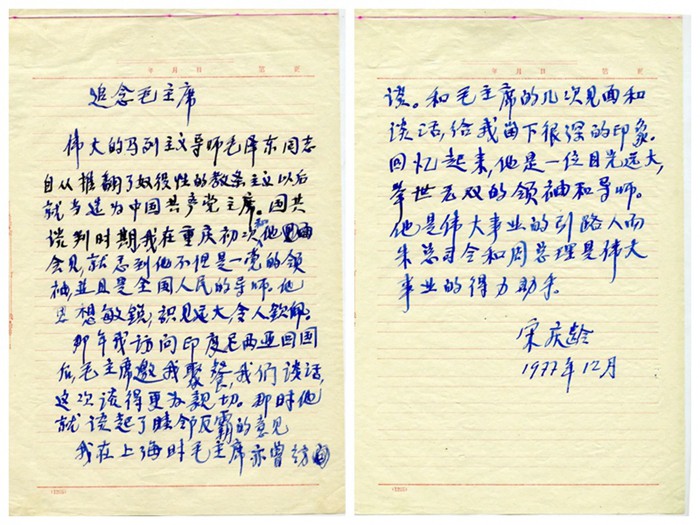 年 月 日 第 页
追念毛主席
伟大的马列主义导师毛泽东同志
自从推翻了奴役性的教条主义以后
就当选为中国共产党主席。国共
谈判时期,我在重庆初次和他
会见,就忑到他不但是一党的领
袖,並且是全国人民的导师。他
思想敏锐,识见远大,令人钦佩。
那年我访问印度尼西亚回国
后,毛主席邀我聚餐,我们谈话,
这次谈得更为親切。那时他
就谈起了睦邻反霸的意见
我在上海时毛主席亦曾访
年 月 日 第 页
谈。和毛主席的几次见面和
谈话,给我留下很深的印象。
回忆起来,他是一位目光远大,
举世无双的领袖和导师。
他是伟大事业的引路人而
朱总司令和周总理是伟大
事业的得力助手。
宋庆龄
1977年12月